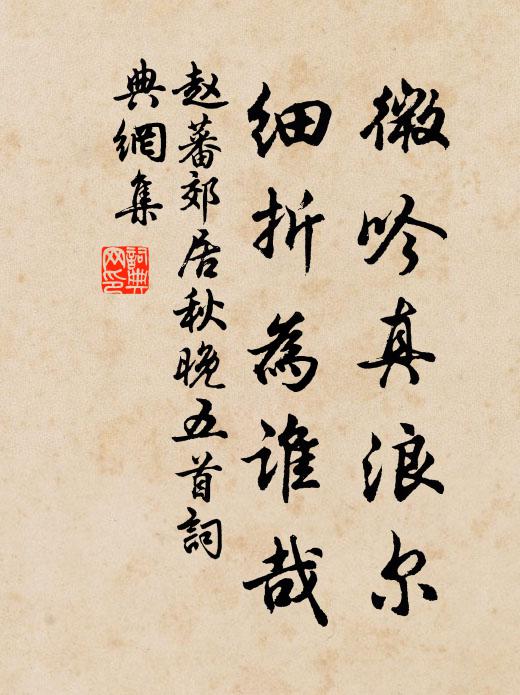 微吟真浪尔
细折為誰哉
赵蕃郊居秋晚五首詞
典網集
詞典
网印